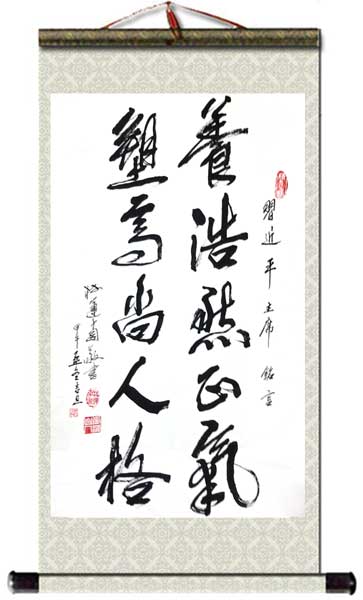 習近平主席銘言
養浩然正氣
塑高尚人格
敬書
甲午